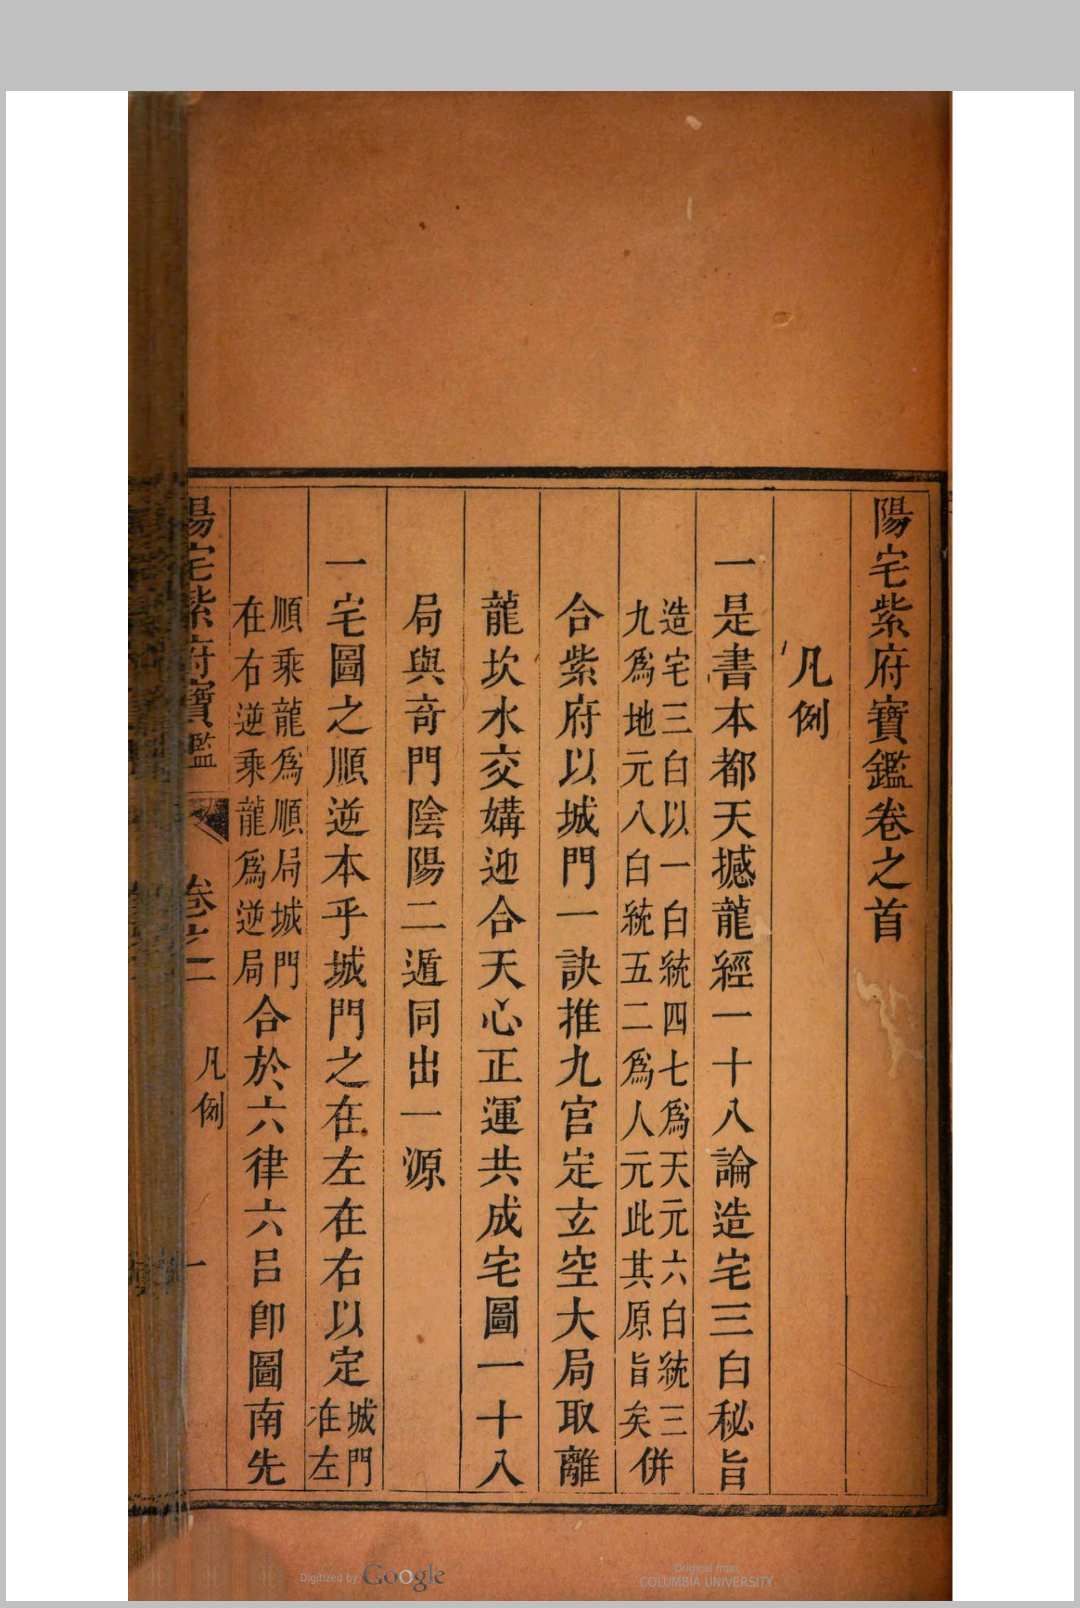 陽宅紫府寶鑑卷之首
凡例
一是書本都天撼龍經一十八論造宅三白秘旨
造宅三白以一白統四七爲天元六白統三
九爲地元八白統五二爲人元此其原旨矣
併
合紫府以城門一訣推九宮定玄空大局取離
龍坎水交媾迎合天心正運共成宅圖一十八
局與奇門陰陽二遁同出一源
一宅圖之順逆本乎城門之在左在右以定
城門
在左
順乘龍爲順局城門
在右逆乘龍爲逆局
合於六律六呂卽圖南先
陽宅紫府寶鑑
卷之
凡例
一
Digitized by Google
Original from
COLUMBIA UNIVERSITY